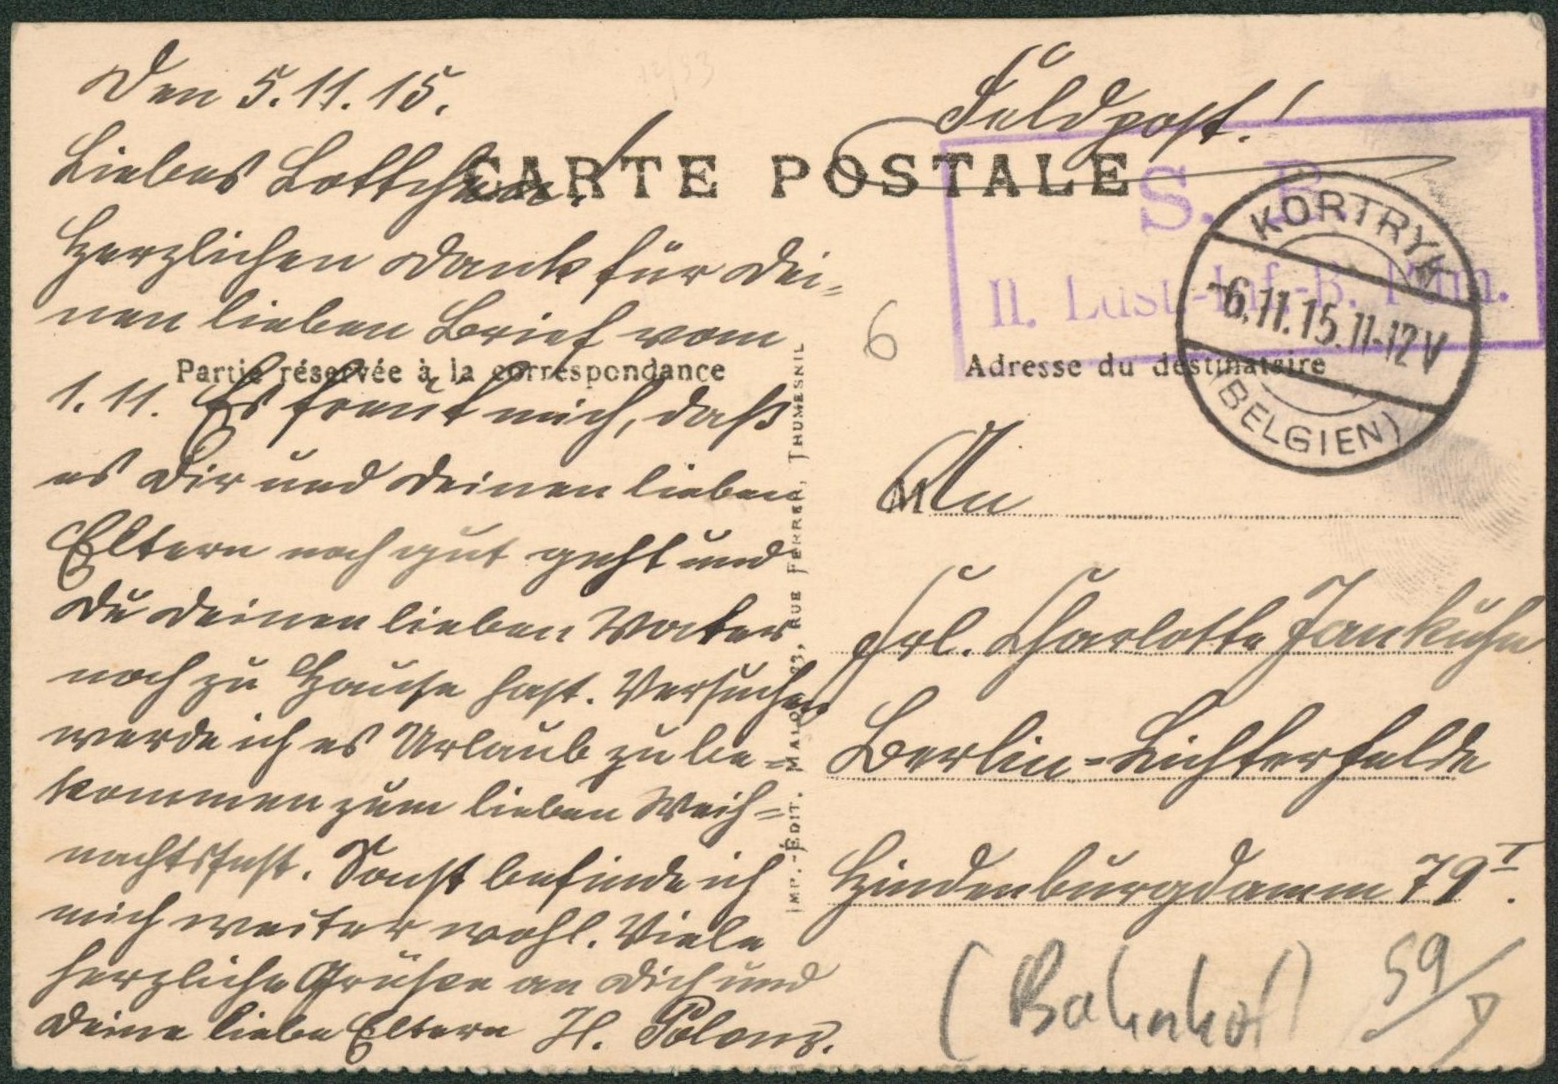 Den 5.11.15.
Liebes Lottchen!
CARTE POSTALE
Herzlichen Dank für Dei-
nen lieben Brief vom
Partie réservée à la correspondance
1.11. Es freut mich, daß
es Dir und Deinen lieben
Eltern noch gut geht und
Du Deinen lieben Vater
noch zu Hause hast. Versuchen
werde ich es Urlaub zu be-
kommen zum lieben Weih-
nachtsfest. Sonst befinde ich
mich weiter wohl. Viele
herzliche Grüße an Dich und
Deine liebe Eltern H. Polenz.
IMP.-ÉDIT. RUE FERRER, THUMESNIL
Feldpost!
S. B.
II. Ldst.-Inf.-B.
KORTRYK
-6.11.15.11-12V
(BELGIEN)
6
Adresse du destinataire
M
An
Frl. Charlotte Jankuhn
Berlin-Lichterfelde
Hindenburgdamm 79 I.
(Bahnhof)
59/